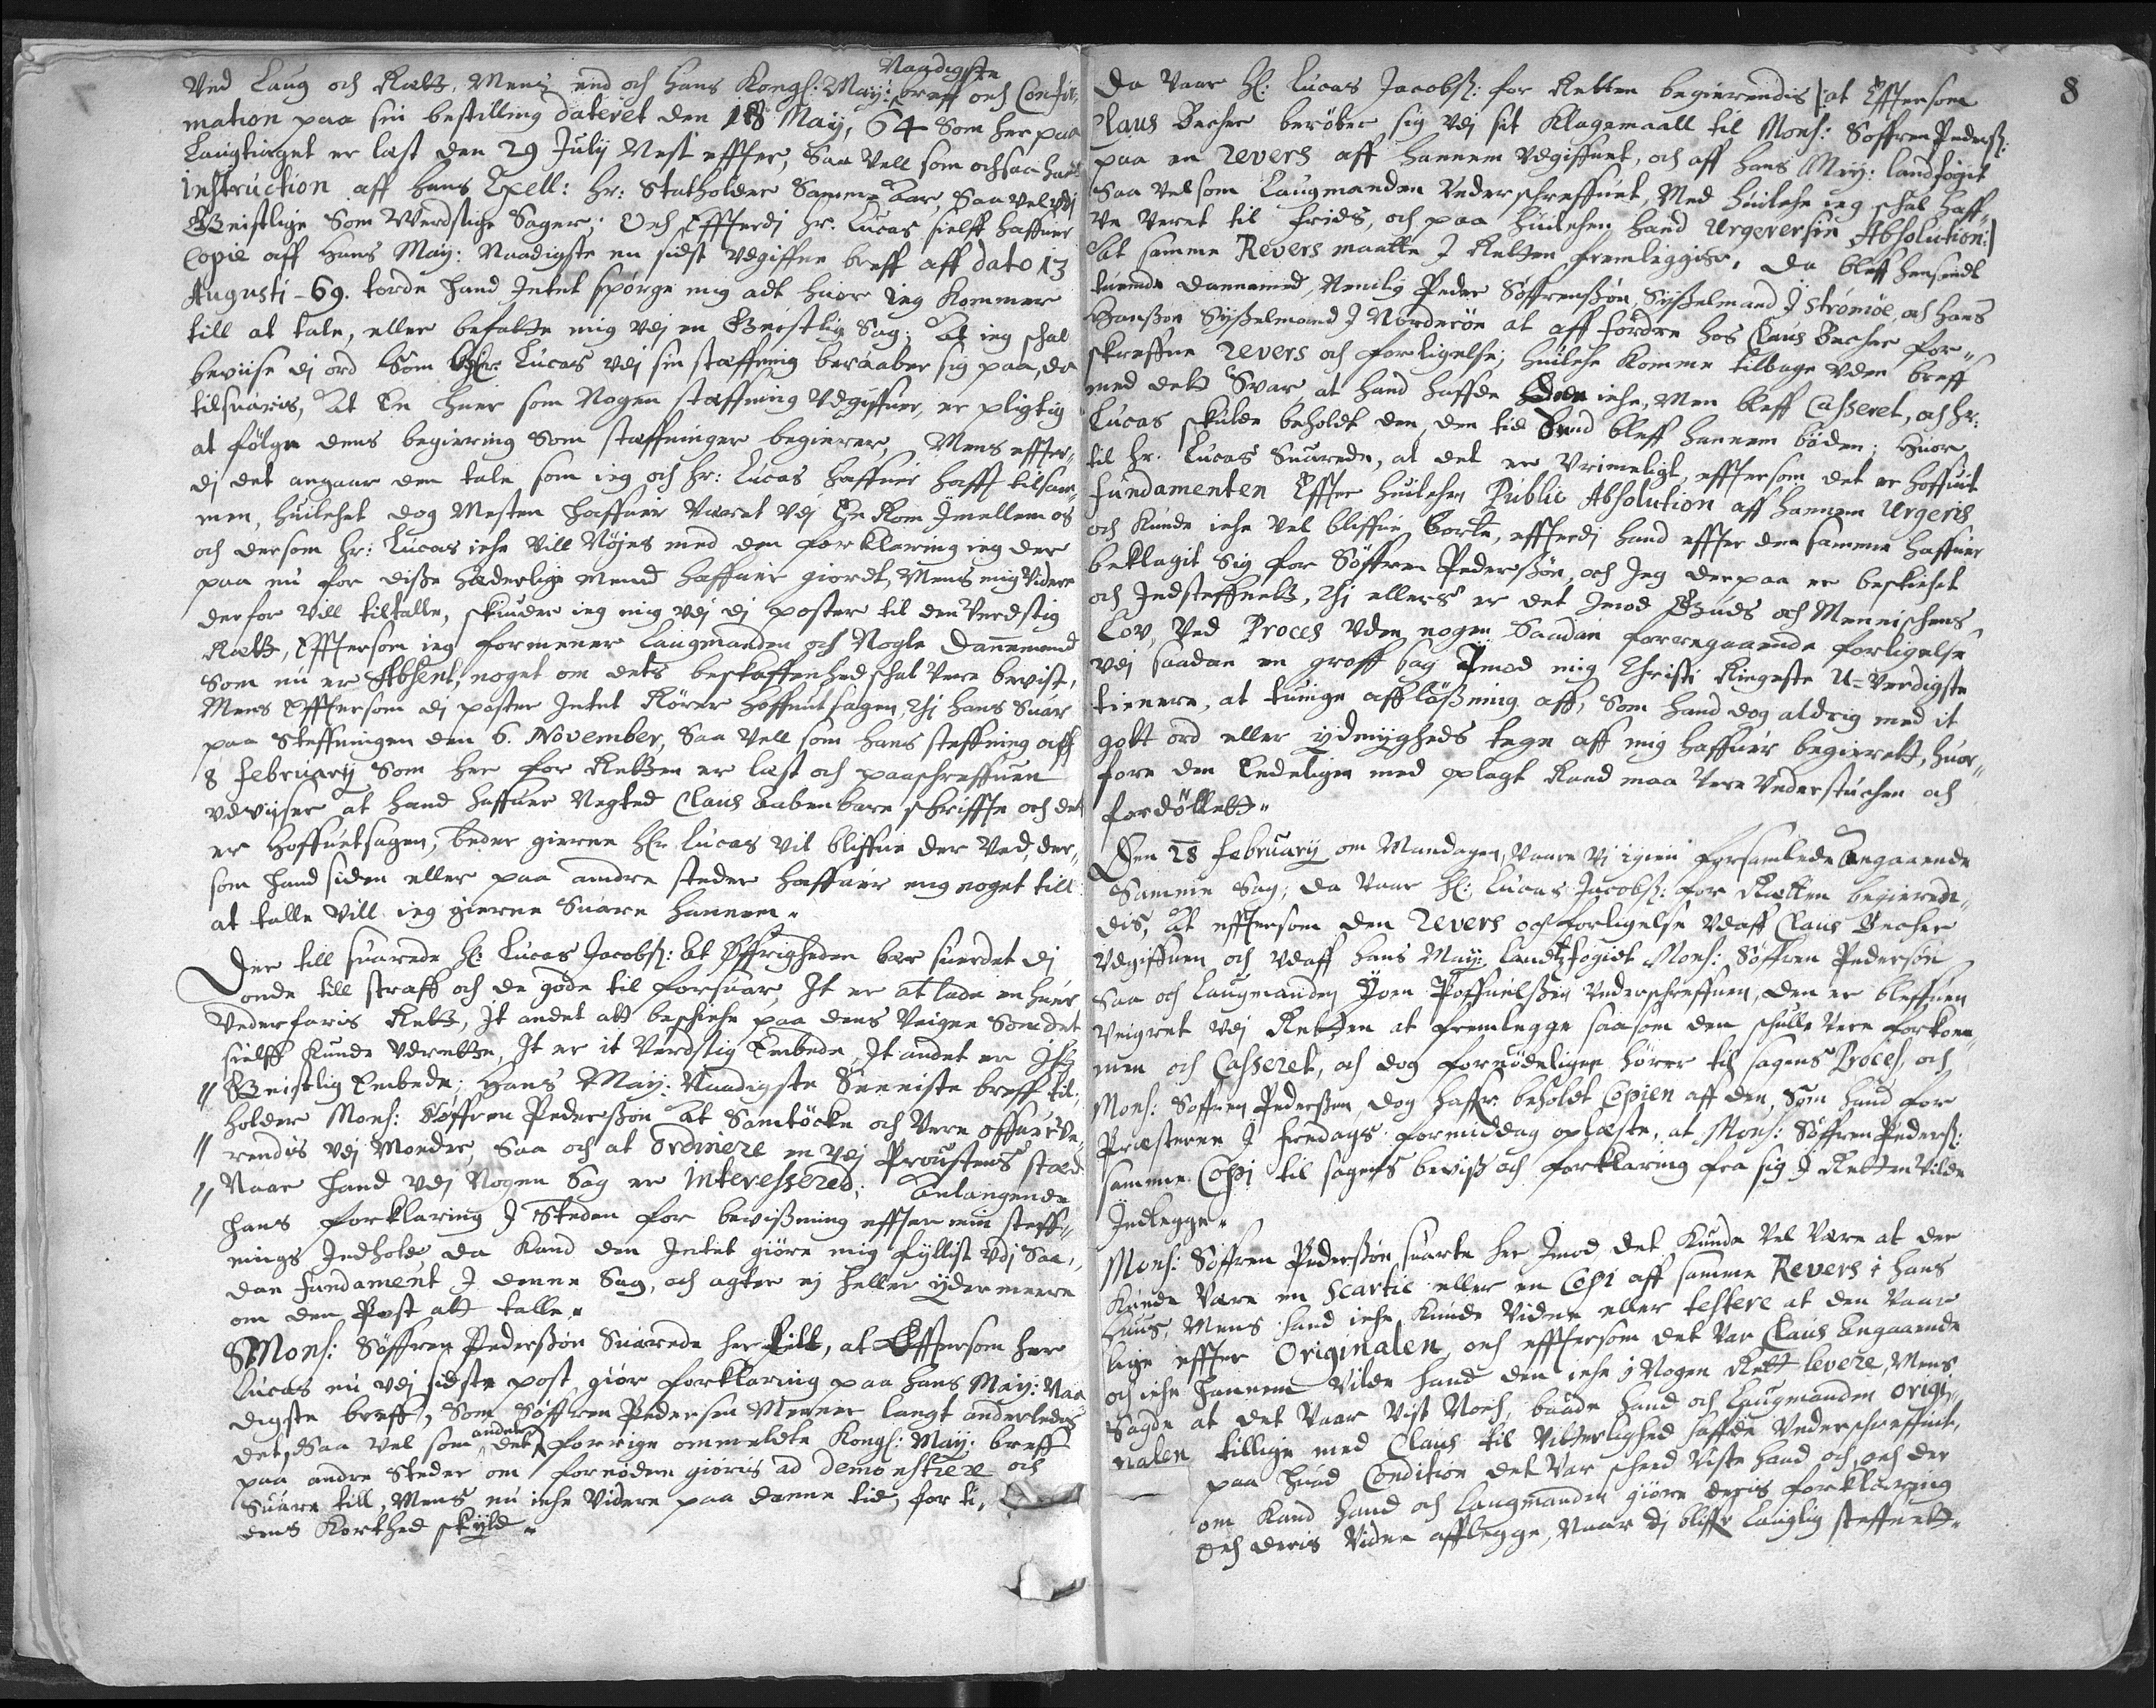 Ved Laug och Rætt, Mens end och hans Kongl: May: Naadigste breff och Confir¬
mation paa sin bestilling dateret den 18 May, 64 Som her paa
Laugtinget er læst den 29 July Nest effter, Saa vell som ochsaa hans
Instruction aff hans Exell: Hr: Statholder Samme Aar, Saa vel udj
Geistlige Som Werdslige Sager; Och Effterdj Hr. Lucas sielff haffuer
Copie aff Hans May: Naadigste nu sidst udgiffne breff aff dato 13
Augusti - 69. torde hand Intet spørge mig adt huor ieg Kommer
till at tale, eller befatte mig udj en Geistlig Sag; At ieg schal
beviise dj ord Som Her Lucas udj sin steffning beraaber sig paa, da
tilsuaris, At En huer som Nogen steffning udgiffuer, er pligtig
at følge dens begiering Som steffninger begierer, Mens effter¬
dj det angaar den tale som ieg och Hr: Lucas haffuer hafft tilsam¬
men, huilchet dog Mesten haffuer Været udj En Rom Imellem os
och dersom Hr: Lucas iche vill Nøjes med den forklaring ieg der
paa nu for diße hæderlige mend haffuer giordt, Mens mig videre
derfor vill tiltalle, skiuder ieg mig udj dj poster til den Verdslig
Rætt, Efftersom ieg formener Laugmanden och Nogle Dannemend
Som nu er Absent, noget om dets beskaffenhed schal Vere bevist,
Mens Efftersom dj poster Intet Rører hoffuitsagen, Thj hans Suar
paa Steffningen den 6. November, Saa vell som hans steffning aff
8 February Som her for Retten er læst och paaschreffuen
udviser at hand haffuer Negted Claus Aabenbare schriffte och det
er Hoffuetsagen, beder gierne Her Lucas vil bliffue der ved, der¬
som hand siden eller paa andre steder haffuer mig noget till
at talle vill ieg gierne Suare hannem.
Der till suarede Hr: Lucas Jacobsß: At Øffrigheden bær suerdet dj
onde till straff och de gode til forsuar, It er at lade en huer
Vederfaris Rett, It andet att beschiche paa dens Veigne Som det
sielff Kunde udrette, It er it Verdslig Embede, It andet er It
Geistlig Embede; Hans May: Naadigste Seeniste breff til¬
holder Mons: Søffren Pederßøn At Samtøcke och Vere offuerve¬
rendis udj Moeder, Saa och at ordinere en udj Proustens sted
Naar hand udj Nogen Sag er interessered; Anlangende
hans forklaring I Steden for bevißning effter min steff¬
nings Indhold, da kand den Intet giøre mig fyllist udj Saa¬
dan fundament I denne Sag, och agter ej heller ydermeere
om den Post att talle.
Mons: Søffren Pederßøn Suarede her till, at Efftersom her
Lucas nu udj sidste post giør forklaring paa hans May: Naa
digste breff, Som Søffren Pedersen Mener langt anderledes
det, Saa vel som andet det forrige ommeldte Kongl: May: breff
paa andre Steder om fornøden giøris ad demonstrere och
Suare till, Mens nu iche Videre paa denne tid, for ti¬
dens Korthed skyld.
8
Da vaar Hr: Lucas Jacobsß: for Retten begierendis /: at Efftersom
Claus Becher berøber sig udj sit Klagemaall til Mons: Søffren Pedersß:
paa en Revers aff hannem udgiffuet, och aff Hans May: Landfogit
Saa vel som Laugmanden Underschreffuet, Med huilche ieg schal haff¬
ve veret til freds, och paa huilchen hand Urgerer sin Absolution:/
At samme Revers maatte I Retten fremleggis, da bleff hensendt
tuende Dannemend, Nemlig Peder Søffrenßøn, Syßelmand I Strømøe, och Hans
Hanßøn Syßelmand I Norderøn at affordre hos Claus Becher for¬
skreffne Revers och forligelse, huilche komme tilbage uden breff
med dett Svar, at hand haffde den iche, Men bleff Casseret, och Hr:
Lucas skulde beholdt den, den tid hand bleff hannem bøden; Huor
til Hr. Lucas Suarede, at det er urimeligt, efftersom det er hoffuit
fundamenten Effter huilchen Public Absolution aff hannem Urgeris
och kunde iche vel bliffue borte, effterdj hand effter den samme haffuer
beklagit sig for Søffren Pederßøn, och Ieg derpaa er beskichet
och Indsteffnett, Thj ellers er det Imod Guds och Mennischens
Lov, ved Proces uden nogen Saadan forregaaende forligelse
udj saadan en groff sag Imod mig Christi Ringeste U=verdigste
tienere, at tuinge affløßning aff, Som hand dog aldrig med it
gott ord eller ydmygheds tegn aff mig haffuer begierett, huor¬
fore den Endeligen med oplagt Raad maa Vere Understuchen och
fordøllett.
Den 28 February om Mandagen, Vaare vj igien forsamlede Angaaende
Samme Sag; da vaar Hr: Lucas Jacobsß: for Retten begieren¬
dis, At efftersom den Revers och forligelse udaff Claus Becher
Udgiffuen och udaff hans May: Landtfogidt Mons: Søffren Pedersøn
Saa och Laugmanden Joen Poffuelßøn Underschreffuen, den er bleffuen
Veigret udj Retten at fremlegge saasom den schulle vere forkom¬
men och Casseret, och dog fornødeligen hører til sagens Proces, och
Mons: Søffren Pederßøn, dog haffr: beholdt Copien aff den, Som hand for
Præsterne I fredags formiddag oplæste, at Mons: Søffren Pedersß:
samme Copi til sagens beviß och forklaring fra sig I Retten vilde
Indlegge.
Mons: Søffren Pederßøn suarte her Imod det kunde vel være at der
Kunde være en Scartic eller en Copi aff samme Revers i hans
Huus, Mens hand iche kunde vidne eller testere at den vaar
lige effter Originalen, och efftersom det var Claus Angaaende
och iche hannem vilde hand den iche i Nogen Rett levere, Mens
Sagde at det vaar vist Noch, baade hand och Laugmanden Origi¬
nalen tillige med Claus til vitterlighed haffde Underschreffuit,
paa huad Condition det var scheed viste hand och, och der
om kand hand och Laugmanden giøre deris forklaring
och deris Vidne afflegge, Naar dj bliffr Lauglig steffnett.